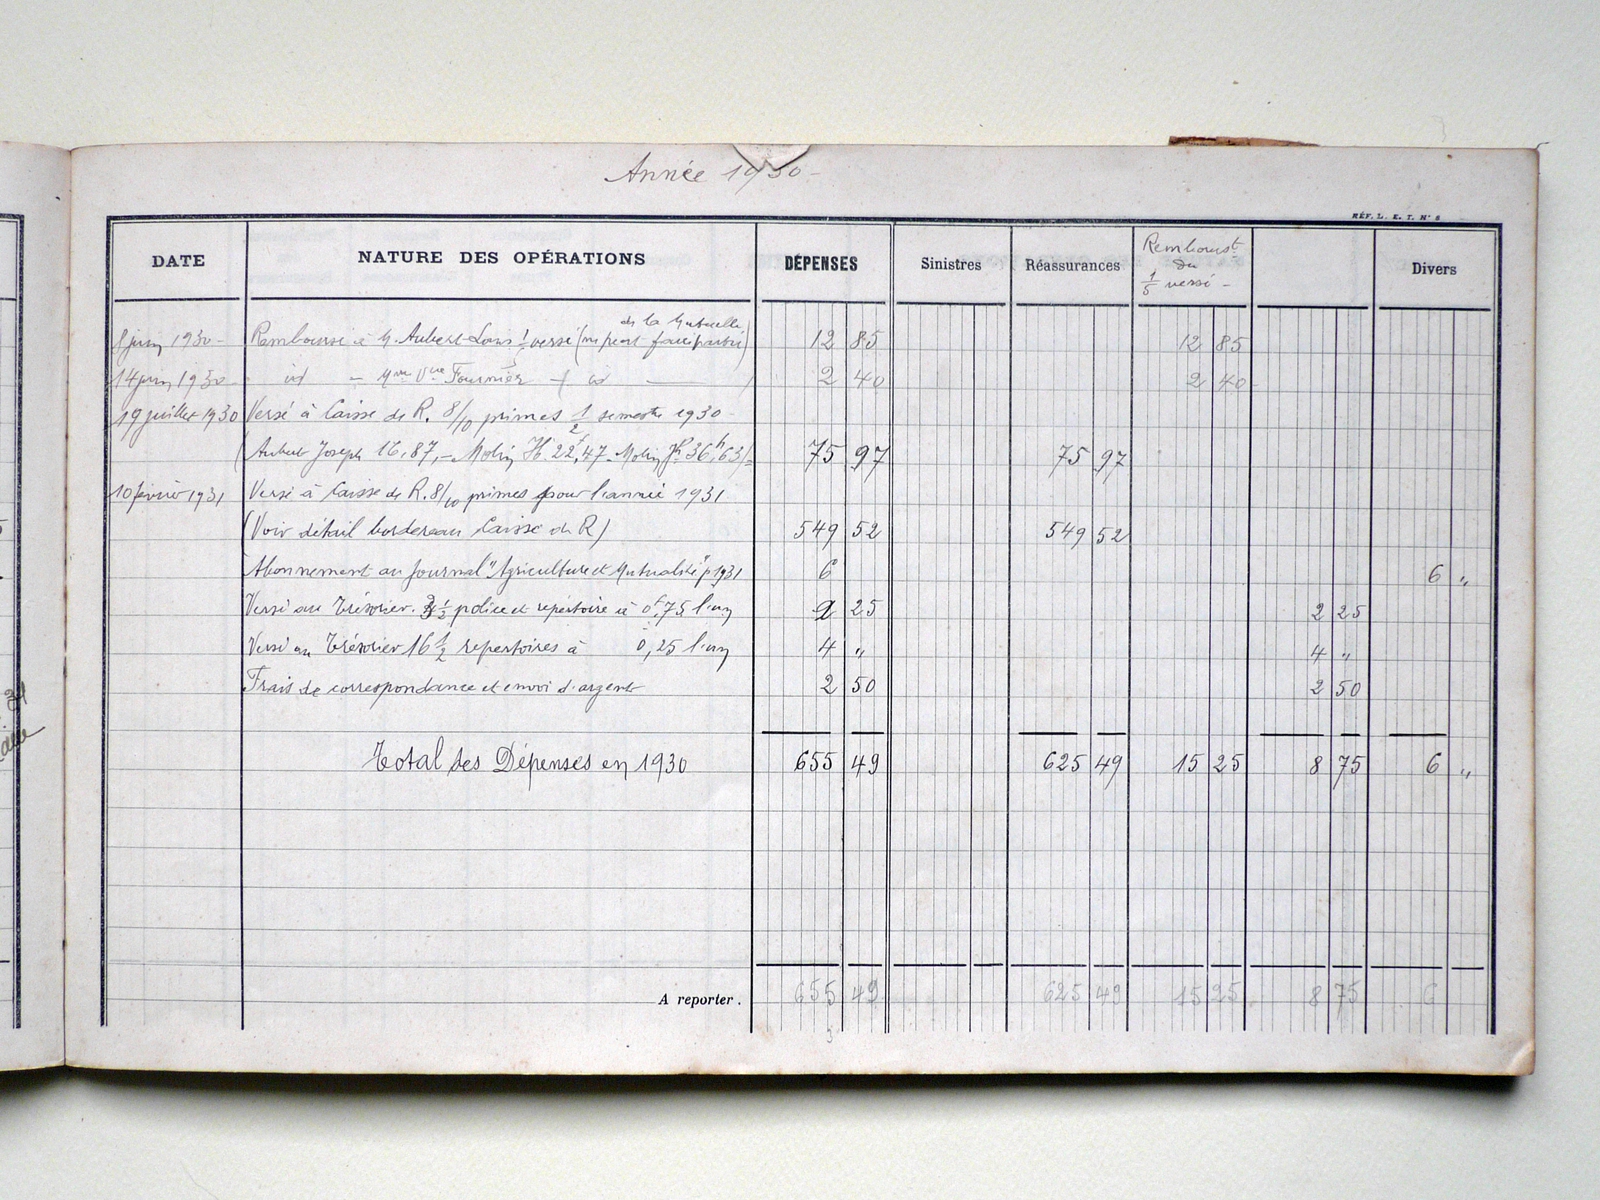 Année 1930-
RÉF. L. E. T. N° 8
DATE NATURE DES OPÉRATIONS DÉPENSES Sinistres Réassurances Rembourst du 1/5 versé - Divers
de la Mutuelle
8 juin 1930- Remboursé à M. Aubert-Louis 1/5 versé (ne peut faire partie) 12 85 12 85
14 juin 1930- id - Mme Vve Fournier - ( id — ) 2 40 2 40
19 juillet 1930 Versé à Caisse de R. 8/10 primes 1/2 semestre 1930-
(Aubert Joseph 16,87,- Molin H 22f,47- Molin Jh 36f,63)- 75 97 75 97
10 février 1931 Versé à Caisse de R. 8/10 primes pour l'année 1931
(Voir détail bordereau Caisse de R) 549 52 549 52
Abonnement au Journal "Agriculture et Mutualité" p 1931 6 6 "
Versé au Trésorier. 3 1/2 police et répertoire à 0f,75 l'un 2 25 2 25
Versé au Trésorier 16 1/2 repertoires à 0,25 l'un 4 " 4 "
Frais de correspondance et envoi d'argent 2 50 2 50
Total des Dépenses en 1930 655 49 625 49 15 25 8 75 6 "
A reporter. 655 49 625 49 15 25 8 75 6